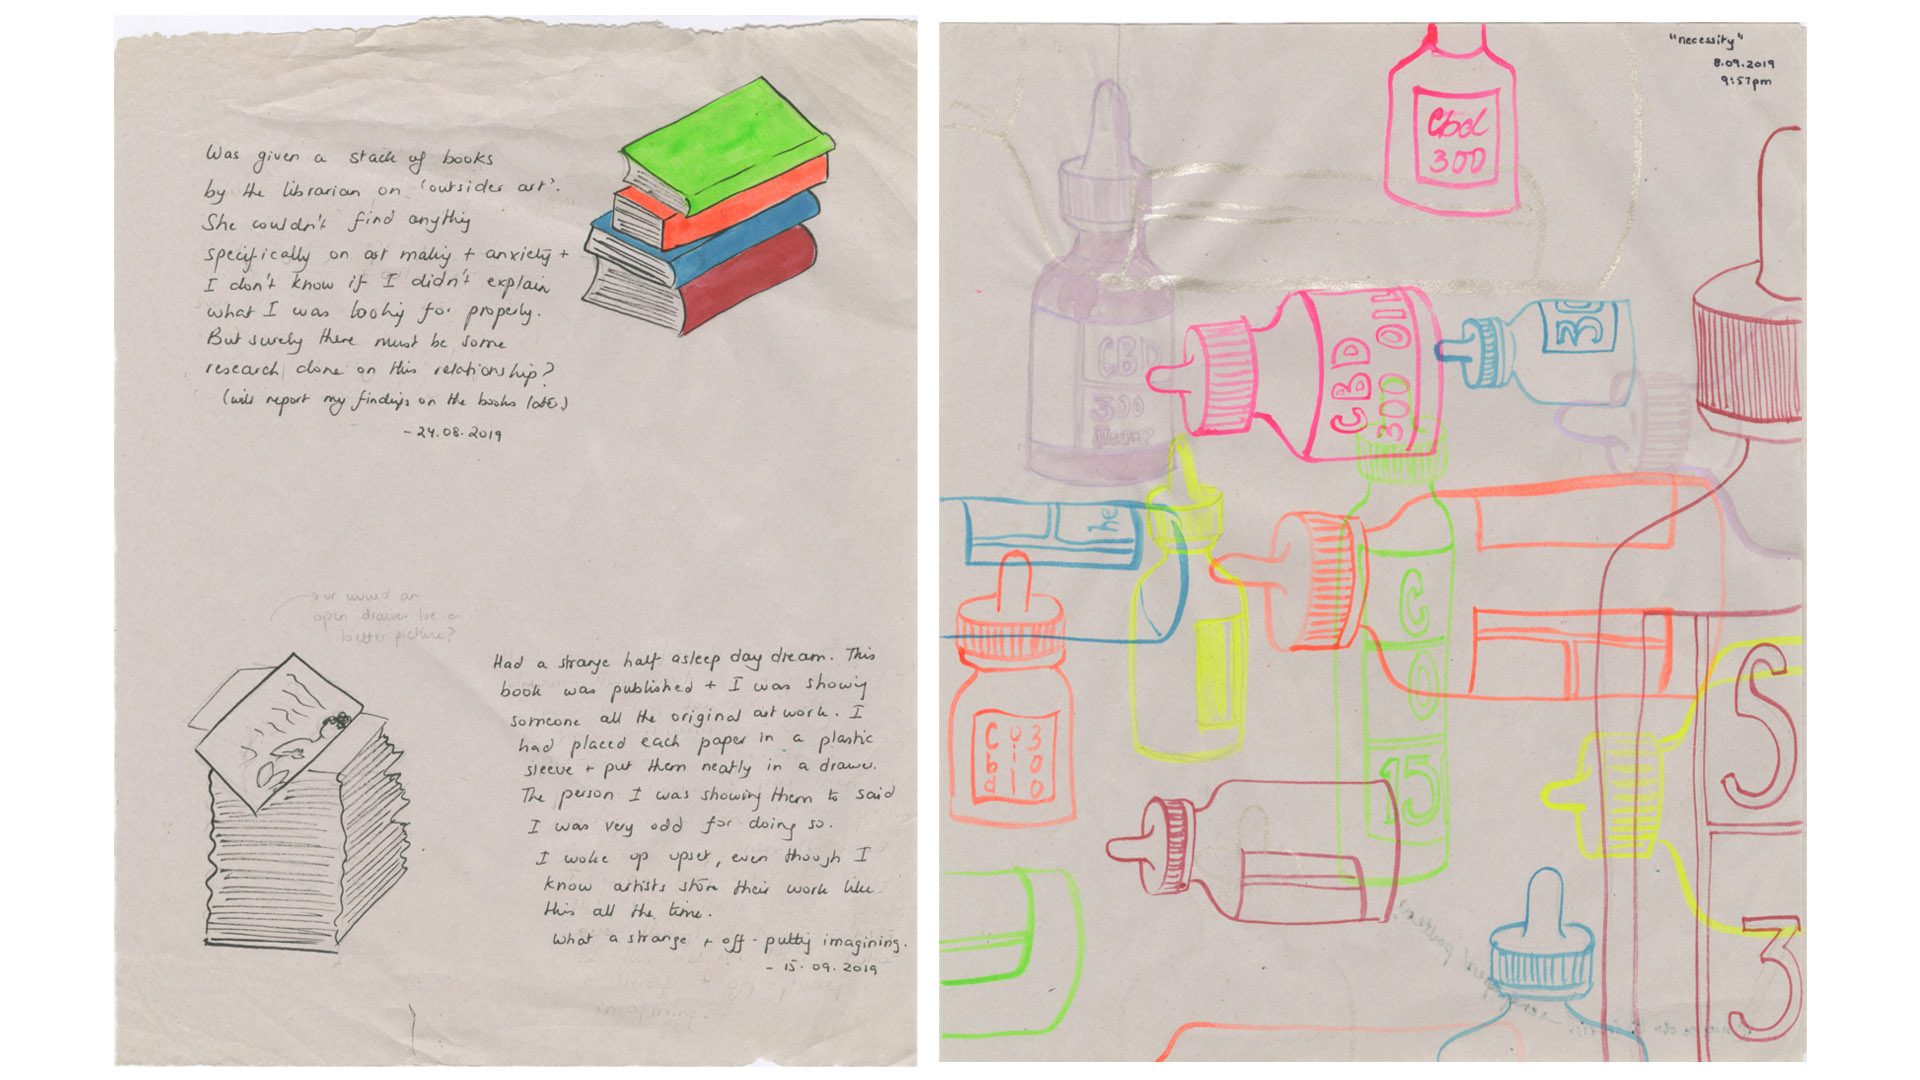 Was given a stack of books
by the librarian on 'outsider art'.
She couldn't find anything
specifically on art making + anxiety +
I don't know if I didn't explain
what I was looking for properly.
But surely there must be some
research done on this relationship?
(will report my findings on the books later)
- 24.08.2019
→ or would an
open drawer be a
better picture?
Had a strange half asleep day dream. This
book was published + I was showing
someone all the original artwork. I
had placed each paper in a plastic
sleeve + put them neatly in a drawer.
The person I was showing them to said
I was very odd for doing so.
I woke up upset, even though I
know artists store their work like
this all the time.
What a strange + off-putting imagining.
- 15.09.2019
"necessity"
8.09.2019
9:57pm
Cbd
300
CBD
300
Hemp
CBD
300 OIL
30
he
C
O
15
Cbd
oil
300
5
3